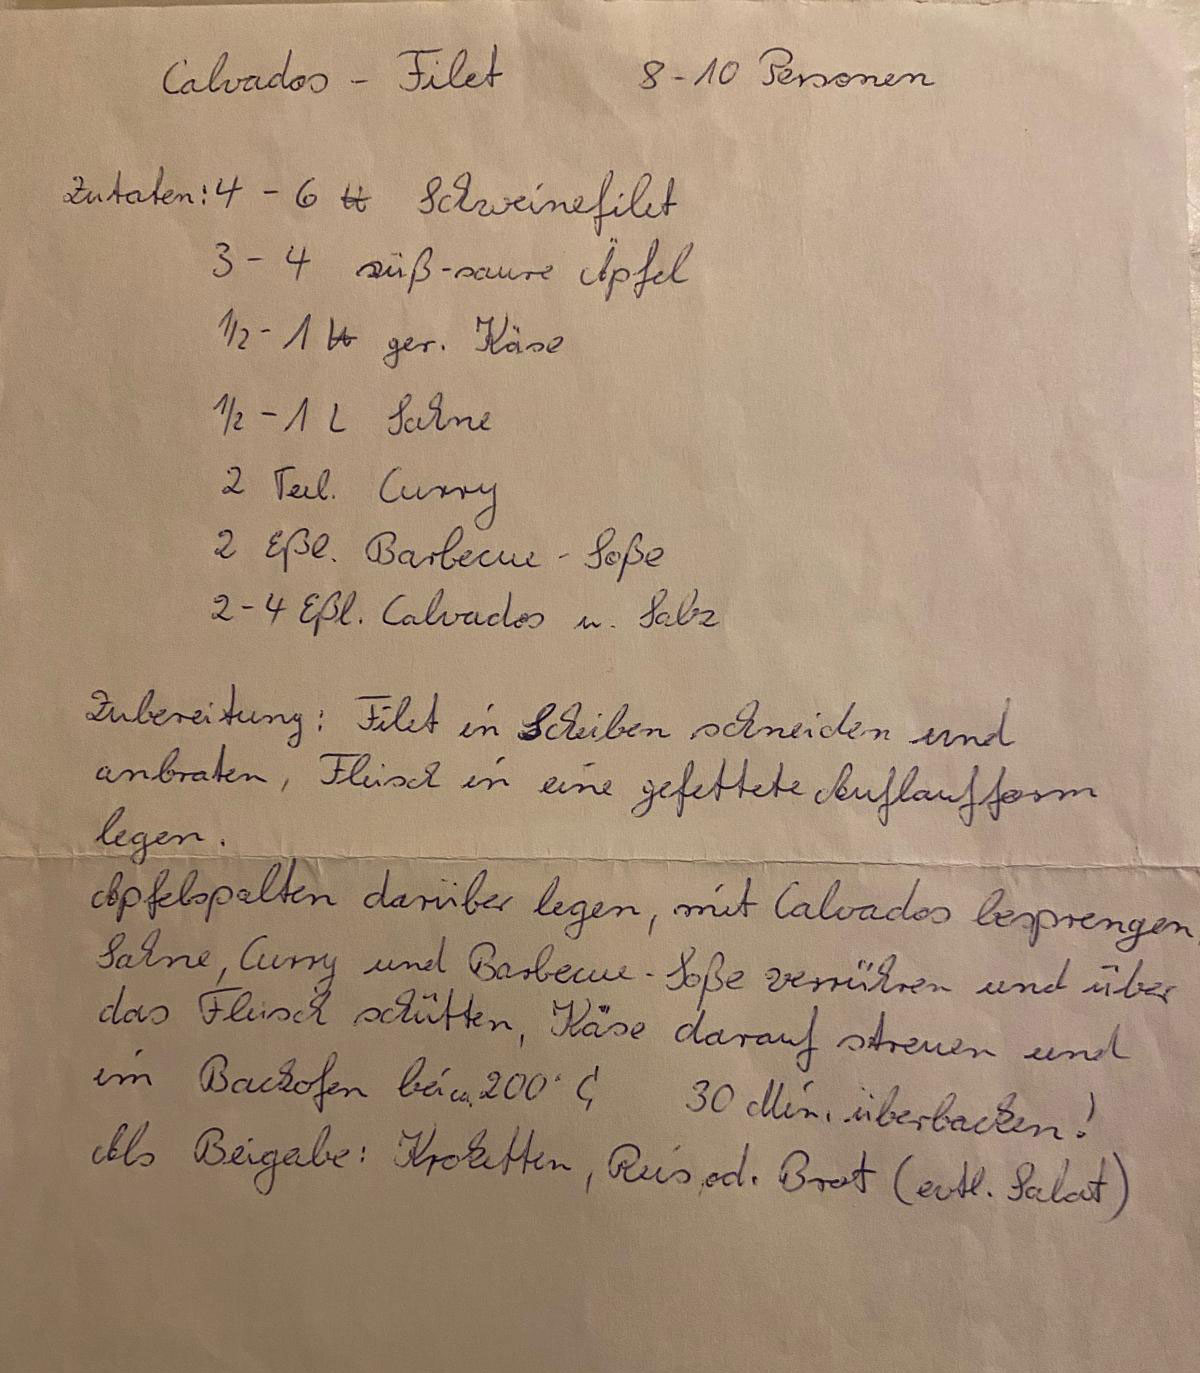 Calvados - Filet 8-10 Personen
Zutaten: 4 - 6 ℔ Schweinefilet
3 - 4 süß-saure Äpfel
1/2 - 1 ℔ ger. Käse
1/2 - 1 L Sahne
2 Teel. Curry
2 Eßl. Barbecue - Soße
2-4 Eßl. Calvados u. Salz
Zubereitung: Filet in Scheiben schneiden und
anbraten, Fleisch in eine gefettete Auflaufform
legen.
Apfelspalten darüber legen, mit Calvados besprengen.
Sahne, Curry und Barbecue-Soße verrühren und über
das Fleisch schütten, Käse darauf streuen und
im Backofen bei ca. 200° C 30 Min. überbacken!
Als Beigabe: Kroketten, Reis, od. Brot (evtl. Salat)